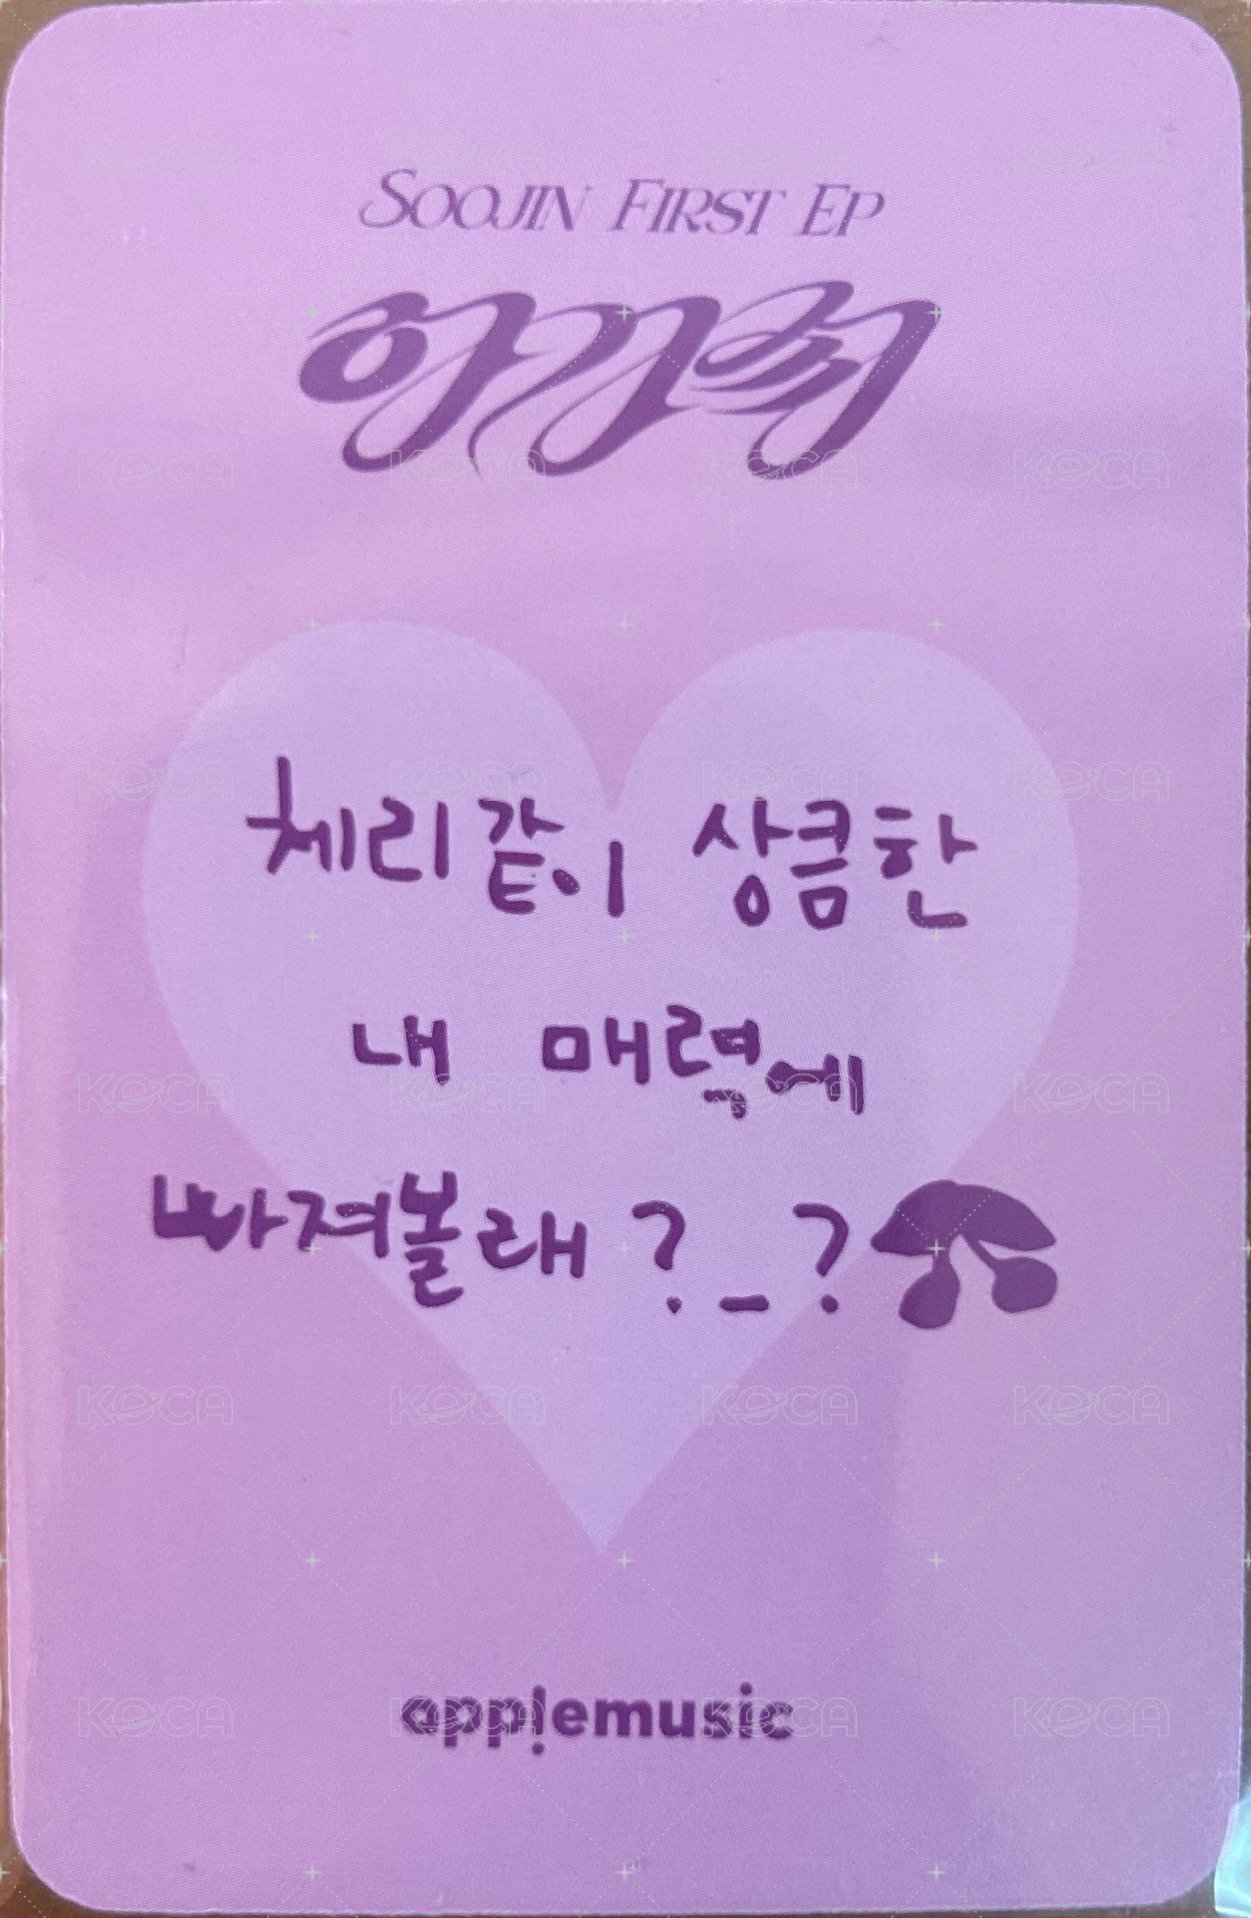 SOOJIN FIRST EP
아가씨
체리같이 상큼한
내 매력에
빠져볼래 ?_?
app!emusic
KOCA